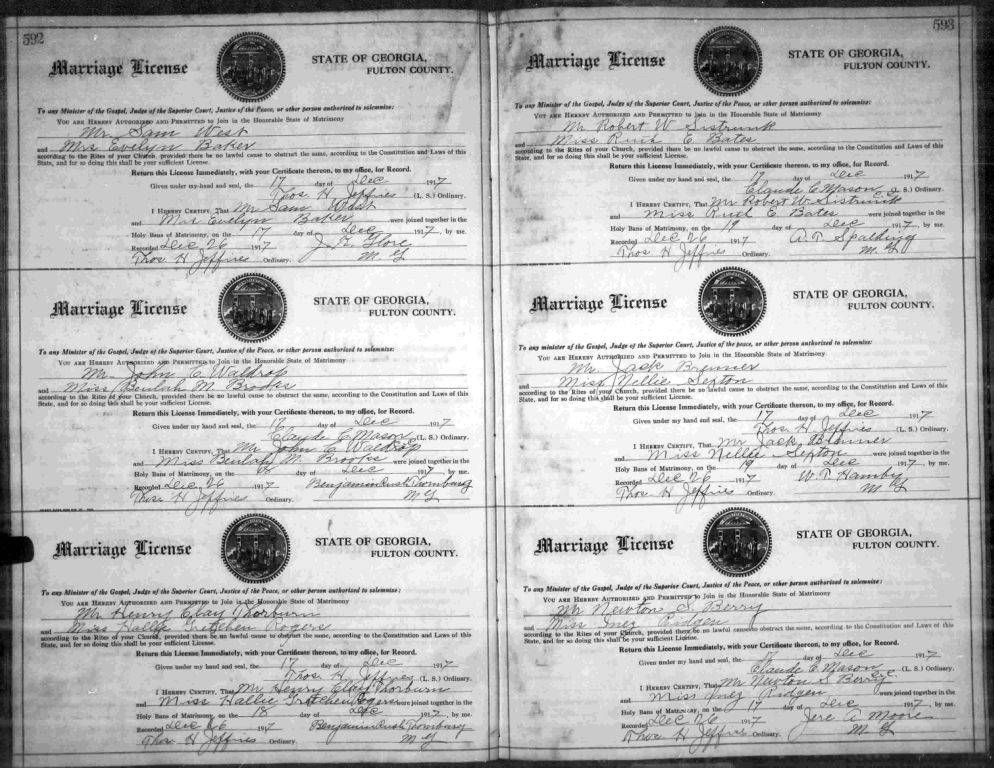 592
Marriage License
STATE OF GEORGIA,
FULTON COUNTY.
To any Minister of the Gospel, Judge of the Superior Court, Justice of the Peace, or other person authorized to solemnize:
YOU ARE HEREBY AUTHORIZED AND PERMITTED to Join in the Honorable State of Matrimony
Mr Sam West
and Mrs Evelyn Baker
according to the Rites of your Church, provided there be no lawful cause to obstruct the same, according to the Constitution and Laws of this
State, and for so doing this shall be your sufficient License.
Return this License Immediately, with your Certificate thereon, to my office, for Record.
Given under my hand and seal, the 17 day of Dec 1917
Thos H. Jeffries (L. S.) Ordinary.
I HEREBY CERTIFY, That Mr Sam West
and Mrs Evelyn Baker were joined together in the
Holy Bans of Matrimony, on the 17 day of Dec 1917, by me.
Recorded Dec 26 1917 J. K. Flore
Thos H Jeffries Ordinary. M. G
Marriage License
STATE OF GEORGIA,
FULTON COUNTY.
To any Minister of the Gospel, Judge of the Superior Court, Justice of the Peace, or other person authorized to solemnize:
YOU ARE HEREBY AUTHORIZED AND PERMITTED to Join in the Honorable State of Matrimony
Mr John C Waldrop
and Miss Beulah M. Brooks
according to the Rites of your Church, provided there be no lawful cause to obstruct the same, according to the Constitution and Laws of this
State, and for so doing this shall be your sufficient License.
Return this License Immediately, with your Certificate thereon, to my office, for Record.
Given under my hand and seal, the 17 day of Dec 1917
Claude C Mason (L. S.) Ordinary.
I HEREBY CERTIFY, That Mr John C Waldrop
and Miss Beulah M. Brooks were joined together in the
Holy Bans of Matrimony, on the day of Dec 1917, by me.
Recorded Dec 26 1917 Benjamin Rush
Thos H Jeffries Ordinary. M G
Marriage License
STATE OF GEORGIA,
FULTON COUNTY.
To any Minister of the Gospel, Judge of the Superior Court, Justice of the Peace, or other person authorized to solemnize:
YOU ARE HEREBY AUTHORIZED AND PERMITTED to Join in the Honorable State of Matrimony
Mr Henry Clay Thorburn
and Miss Hallie Gretchen Rogers
according to the Rites of your Church, provided there be no lawful cause to obstruct the same, according to the Constitution and Laws of this
State, and for so doing this shall be your sufficient License.
Return this License Immediately, with your Certificate thereon, to my office, for Record.
Given under my hand and seal, the 17 day of Dec 1917
Thos H. Jeffries (L. S.) Ordinary.
I HEREBY CERTIFY, That Mr Henry Clay Thorburn
and Miss Hallie Gretchen Rogers were joined together in the
Holy Bans of Matrimony, on the 18 day of Dec 1917, by me.
Recorded Dec 26 1917 Benjamin Rush
Thos H Jeffries Ordinary. M G
593
Marriage License
STATE OF GEORGIA,
FULTON COUNTY.
To any Minister of the Gospel, Judge of the Superior Court, Justice of the Peace, or other person authorized to solemnize:
YOU ARE HEREBY AUTHORIZED AND PERMITTED to Join in the Honorable State of Matrimony
Mr Robert W Sistrunk
and Miss Ruth E. Bates
according to the Rites of your Church, provided there be no lawful cause to obstruct the same, according to the Constitution and Laws of this
State, and for so doing this shall be your sufficient License.
Return this License Immediately, with your Certificate thereon, to my office, for Record.
Given under my hand and seal, the 17 day of Dec 1917
Claude C Mason (L. S.) Ordinary.
I HEREBY CERTIFY, That Mr Robert W Sistrunk
and Miss Ruth E Bates were joined together in the
Holy Bans of Matrimony, on the 19 day of Dec 1917, by me.
Recorded Dec 26 1917 A. T. Spalding
Thos H Jeffries Ordinary. M. G
Marriage License
STATE OF GEORGIA,
FULTON COUNTY.
To any minister of the Gospel, Judge of the Superior Court, Justice of the peace, or other person authorized to solemnize:
YOU ARE HEREBY AUTHORIZED AND PERMITTED to Join in the Honorable State of Matrimony
Mr. Jack Brenner
and Miss Nellie Sexton
according to the Rites of your Church, provided there be no lawful cause to obstruct the same, according to the Constitution and Laws of this
State, and for so doing this shall be your sufficient License.
Return this License Immediately, with your Certificate thereon, to my office, for Record.
Given under my hand and seal, the 17 day of Dec 1917
Thos. H Jeffries (L. S.) Ordinary.
I HEREBY CERTIFY, That Mr Jack Brenner
and Miss Nellie Sexton were joined together in the
Holy Bans of Matrimony, on the 19 day of Dec 1917, by me.
Recorded Dec 26 1917 W. T. Hamby
Thos H Jeffries Ordinary. M. G
Marriage License
STATE OF GEORGIA,
FULTON COUNTY.
To any Minister of the Gospel, Judge of the Superior Court, Justice of the Peace, or other person authorized to solemnize:
YOU ARE HEREBY AUTHORIZED AND PERMITTED to Join in the Honorable State of Matrimony
Mr Newton S. Berry
and Miss Inez Pidgen
according to the Rites of your Church, provided there be no lawful cause to obstruct the same, according to the Constitution and Laws of this
State, and for so doing this shall be your sufficient License.
Return this License Immediately, with your Certificate thereon, to my office, for Record.
Given under my hand and seal, the 17 day of Dec 1917
Claude C. Mason (L. S.) Ordinary.
I HEREBY CERTIFY, That Mr Newton S Berry
and Miss Inez Pidgen were joined together in the
Holy Bans of Matrimony, on the 17 day of Dec 1917, by me.
Recorded Dec 26 1917 Jere A Moore
Thos H Jeffries Ordinary. M. G